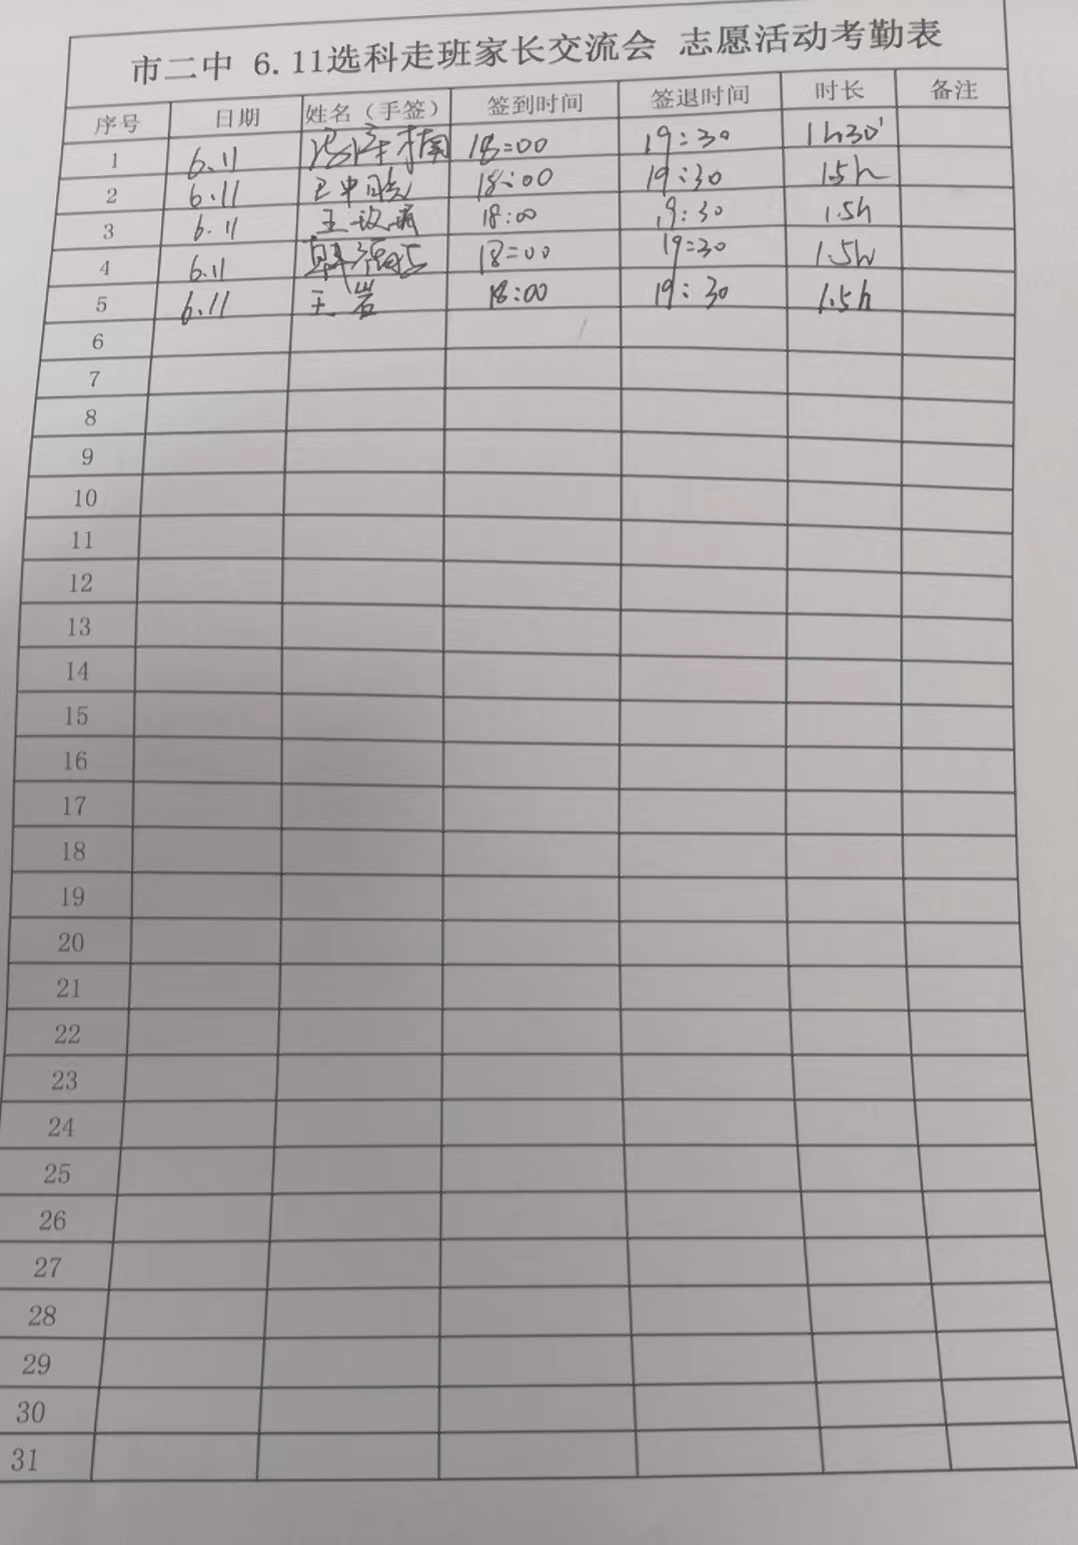 市二中 6.11选科走班家长交流会 志愿活动考勤表
序号 日期 姓名（手签） 签到时间 签退时间 时长 备注
1 6.11 18:00 19:30 1h30'
2 6.11 18:00 19:30 1.5h
3 6.11 王 18:00 19:30 1.5h
4 6.11 18:00 19:30 1.5h
5 6.11 王岩 18:00 19:30 1.5h
6
7
8
9
10
11
12
13
14
15
16
17
18
19
20
21
22
23
24
25
26
27
28
29
30
31